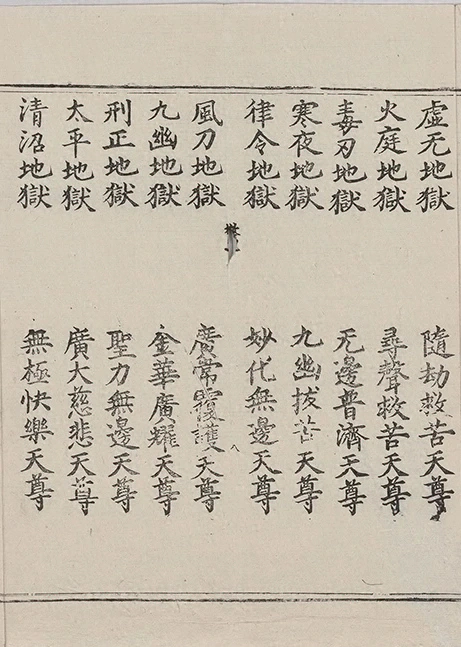 虛无地獄　隨劫救苦天尊
火庭地獄　尋聲救苦天尊
毒刃地獄　无邊普濟天尊
寒夜地獄　九幽拔苦天尊
律令地獄　妙代無邊天尊
八
風刀地獄　常覆護天尊
九幽地獄　金華廣耀天尊
刑正地獄　聖力無邊天尊
太平地獄　廣大慈悲天尊
清沼地獄　無極快樂天尊